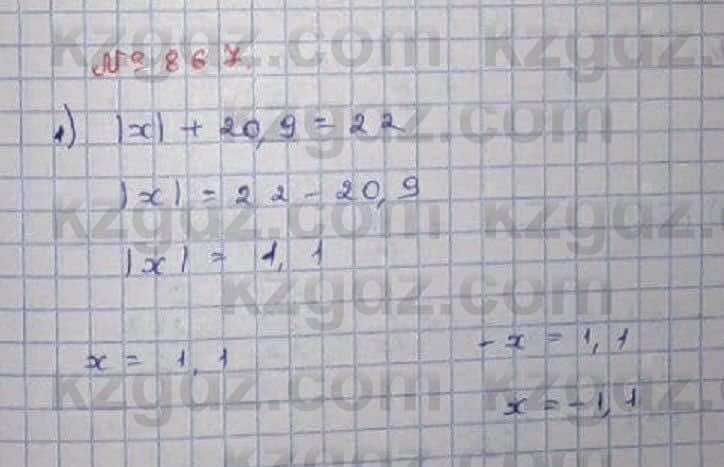 № 867.
1) |x| + 20,9 = 22
|x| = 22 - 20,9
|x| = 1,1
x = 1,1
-x = 1,1
x = -1,1
kzgdz.com kzgdz.com
kzgdz.com kzgdz.com
kzgdz.com
kzgdz.com kzgdz.com